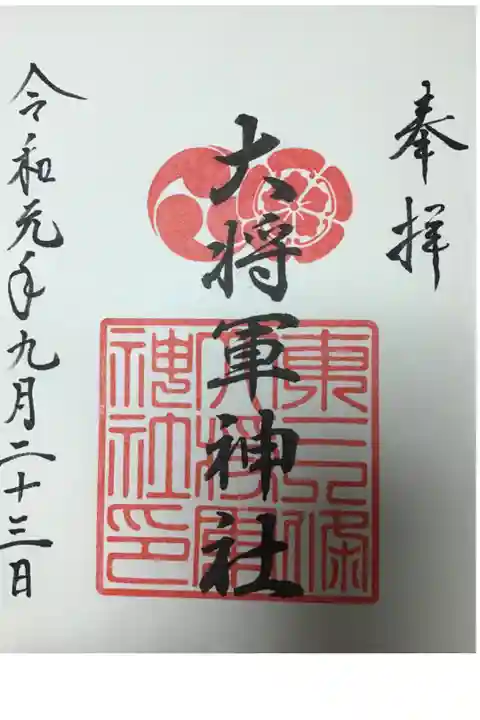 奉拝
大将軍神社
東三條
大将軍
神社印
令和元年九月二十三日